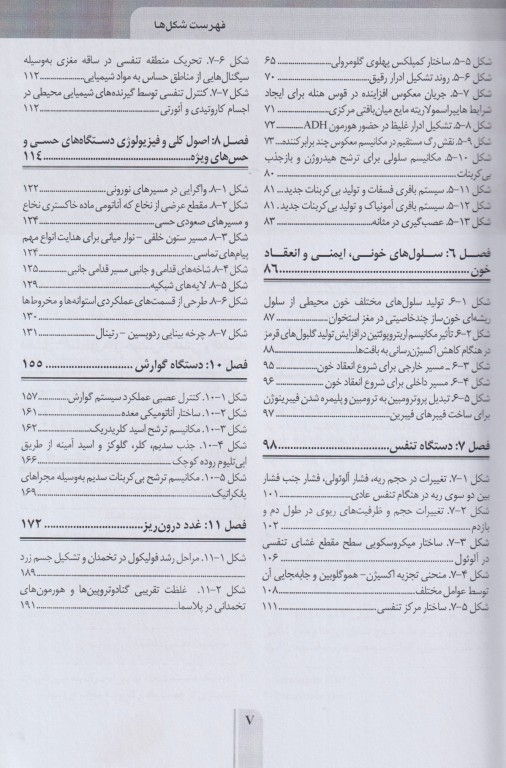 فهرست شکل‌ها
شکل ۵-۵. ساختار کمپلکس پهلوی گلومرولی ..... ۶۵
شکل ۶-۵. روند تشکیل ادرار رقیق ..... ۷۰
شکل ۷-۵. جریان معکوس افزاینده در قوس هنله برای ایجاد
شرایط هایپراسمولاریته مایع میان‌بافتی مرکزی ..... ۷۱
شکل ۸-۵. تشکیل ادرار غلیظ در حضور هورمون ADH ..... ۷۲
شکل ۹-۵. نقش رگ مستقیم در مکانیسم معکوس چند برابر کننده ... ۷۳
شکل ۱۰-۵. مکانیسم سلولی برای ترشح هیدروژن و بازجذب
بی‌کربنات ..... ۸۰
شکل ۱۱-۵. سیستم بافری فسفات و تولید بی‌کربنات جدید ..... ۸۱
شکل ۱۲-۵. سیستم بافری آمونیاک و تولید بی‌کربنات جدید . ۸۱
شکل ۱۳-۵. عصب‌گیری در مثانه ..... ۸۳
فصل ۶: سلول‌های خونی، ایمنی و انعقاد
خون ..... ۸۶
شکل ۱-۶. تولید سلول‌های مختلف خون محیطی از سلول
ریشه‌ای خون‌ساز چندخاصیتی در مغز استخوان ..... ۸۷
شکل ۲-۶. تأثیر مکانیسم اریتروپوئتین در افزایش تولید گلبول‌های قرمز
در هنگام کاهش اکسیژن‌رسانی به بافت‌ها ..... ۸۸
شکل ۳-۶ - مسیر خارجی برای شروع انعقاد خون ..... ۹۵
شکل ۴-۶. مسیر داخلی برای شروع انعقاد خون ..... ۹۶
شکل ۵-۶. تبدیل پروترومبین به ترومبین و پلیمره شدن فیبرینوژن
برای ساخت فیبرهای فیبرین ..... ۹۷
فصل ۷: دستگاه تنفس ..... ۹۸
شکل ۱-۷. تغییرات در حجم ریه، فشار آلوئولی، فشار جنب فشار
بین دو سوی ریه در هنگام تنفس عادی ..... ۱۰۱
شکل ۲-۷. تغییرات حجم و ظرفیت‌های ریوی در طول دم و
بازدم ..... ۱۰۲
شکل ۳-۷. ساختار میکروسکوپی سطح مقطع غشای تنفسی
در آلوئول ..... ۱۰۶
شکل ۴-۷. منحنی تجزیه اکسیژن- هموگلوبین و جابه‌جایی آن
توسط عوامل مختلف ..... ۱۰۸
شکل ۵-۷. ساختار مرکز تنفسی ..... ۱۱۱
شکل ۶-۷. تحریک منطقه تنفسی در ساقه مغزی به‌وسیله
سیگنال‌هایی از مناطق حساس به مواد شیمیایی ..... ۱۱۲
شکل ۷-۷. کنترل تنفس توسط گیرنده‌های شیمیایی محیطی در
اجسام کاروتیدی و آئورتی ..... ۱۱۲
فصل ۸: اصول کلی و فیزیولوژی دستگاه‌های حسی و
حس‌های ویژه ..... ۱۱۴
شکل ۱-۸. واگرایی در مسیرهای نورونی ..... ۱۲۲
شکل ۲-۸. مقطع عرضی از نخاع که آناتومی ماده خاکستری نخاع
و مسیرهای صعودی حسی ..... ۱۲۴
شکل ۳-۸. مسیر ستون خلفی - نوار میانی برای هدایت انواع مهم
پیام‌های تماسی ..... ۱۲۴
شکل ۴-۸. شاخه‌های قدامی و جانبی مسیر قدامی جانبی ..... ۱۲۵
شکل ۵-۸. لایه‌های شبکیه ..... ۱۲۹
شکل ۶-۸. طرحی از قسمت‌های عملکردی استوانه‌ها و مخروط‌ها
..... ۱۳۰
شکل ۷-۸. چرخه بینایی ردوپسین - رتینال ..... ۱۳۱
فصل ۱۰: دستگاه گوارش ..... ۱۵۵
شکل ۱-۱۰. کنترل عصبی عملکرد سیستم گوارش ..... ۱۵۷
شکل ۲-۱۰. ساختار آناتومیکی معده ..... ۱۶۱
شکل ۳-۱۰. مکانیسم ترشح اسید کلریدریک ..... ۱۶۲
شکل ۴-۱۰. جذب سدیم، کلر، گلوکز و اسید آمینه از طریق
اپی‌تلیوم روده کوچک ..... ۱۶۶
شکل ۵-۱۰. مکانیسم ترشح بی‌کربنات سدیم به‌وسیله مجراهای
پانکراتیک ..... ۱۶۹
فصل ۱۱: غدد درون‌ریز ..... ۱۷۲
شکل ۱-۱۱. مراحل رشد فولیکول در تخمدان و تشکیل جسم زرد
..... ۱۸۹
شکل ۲-۱۱. غلظت تقریبی گنادوتروپین‌ها و هورمون‌های
تخمدانی در پلاسما ..... ۱۹۱
۷